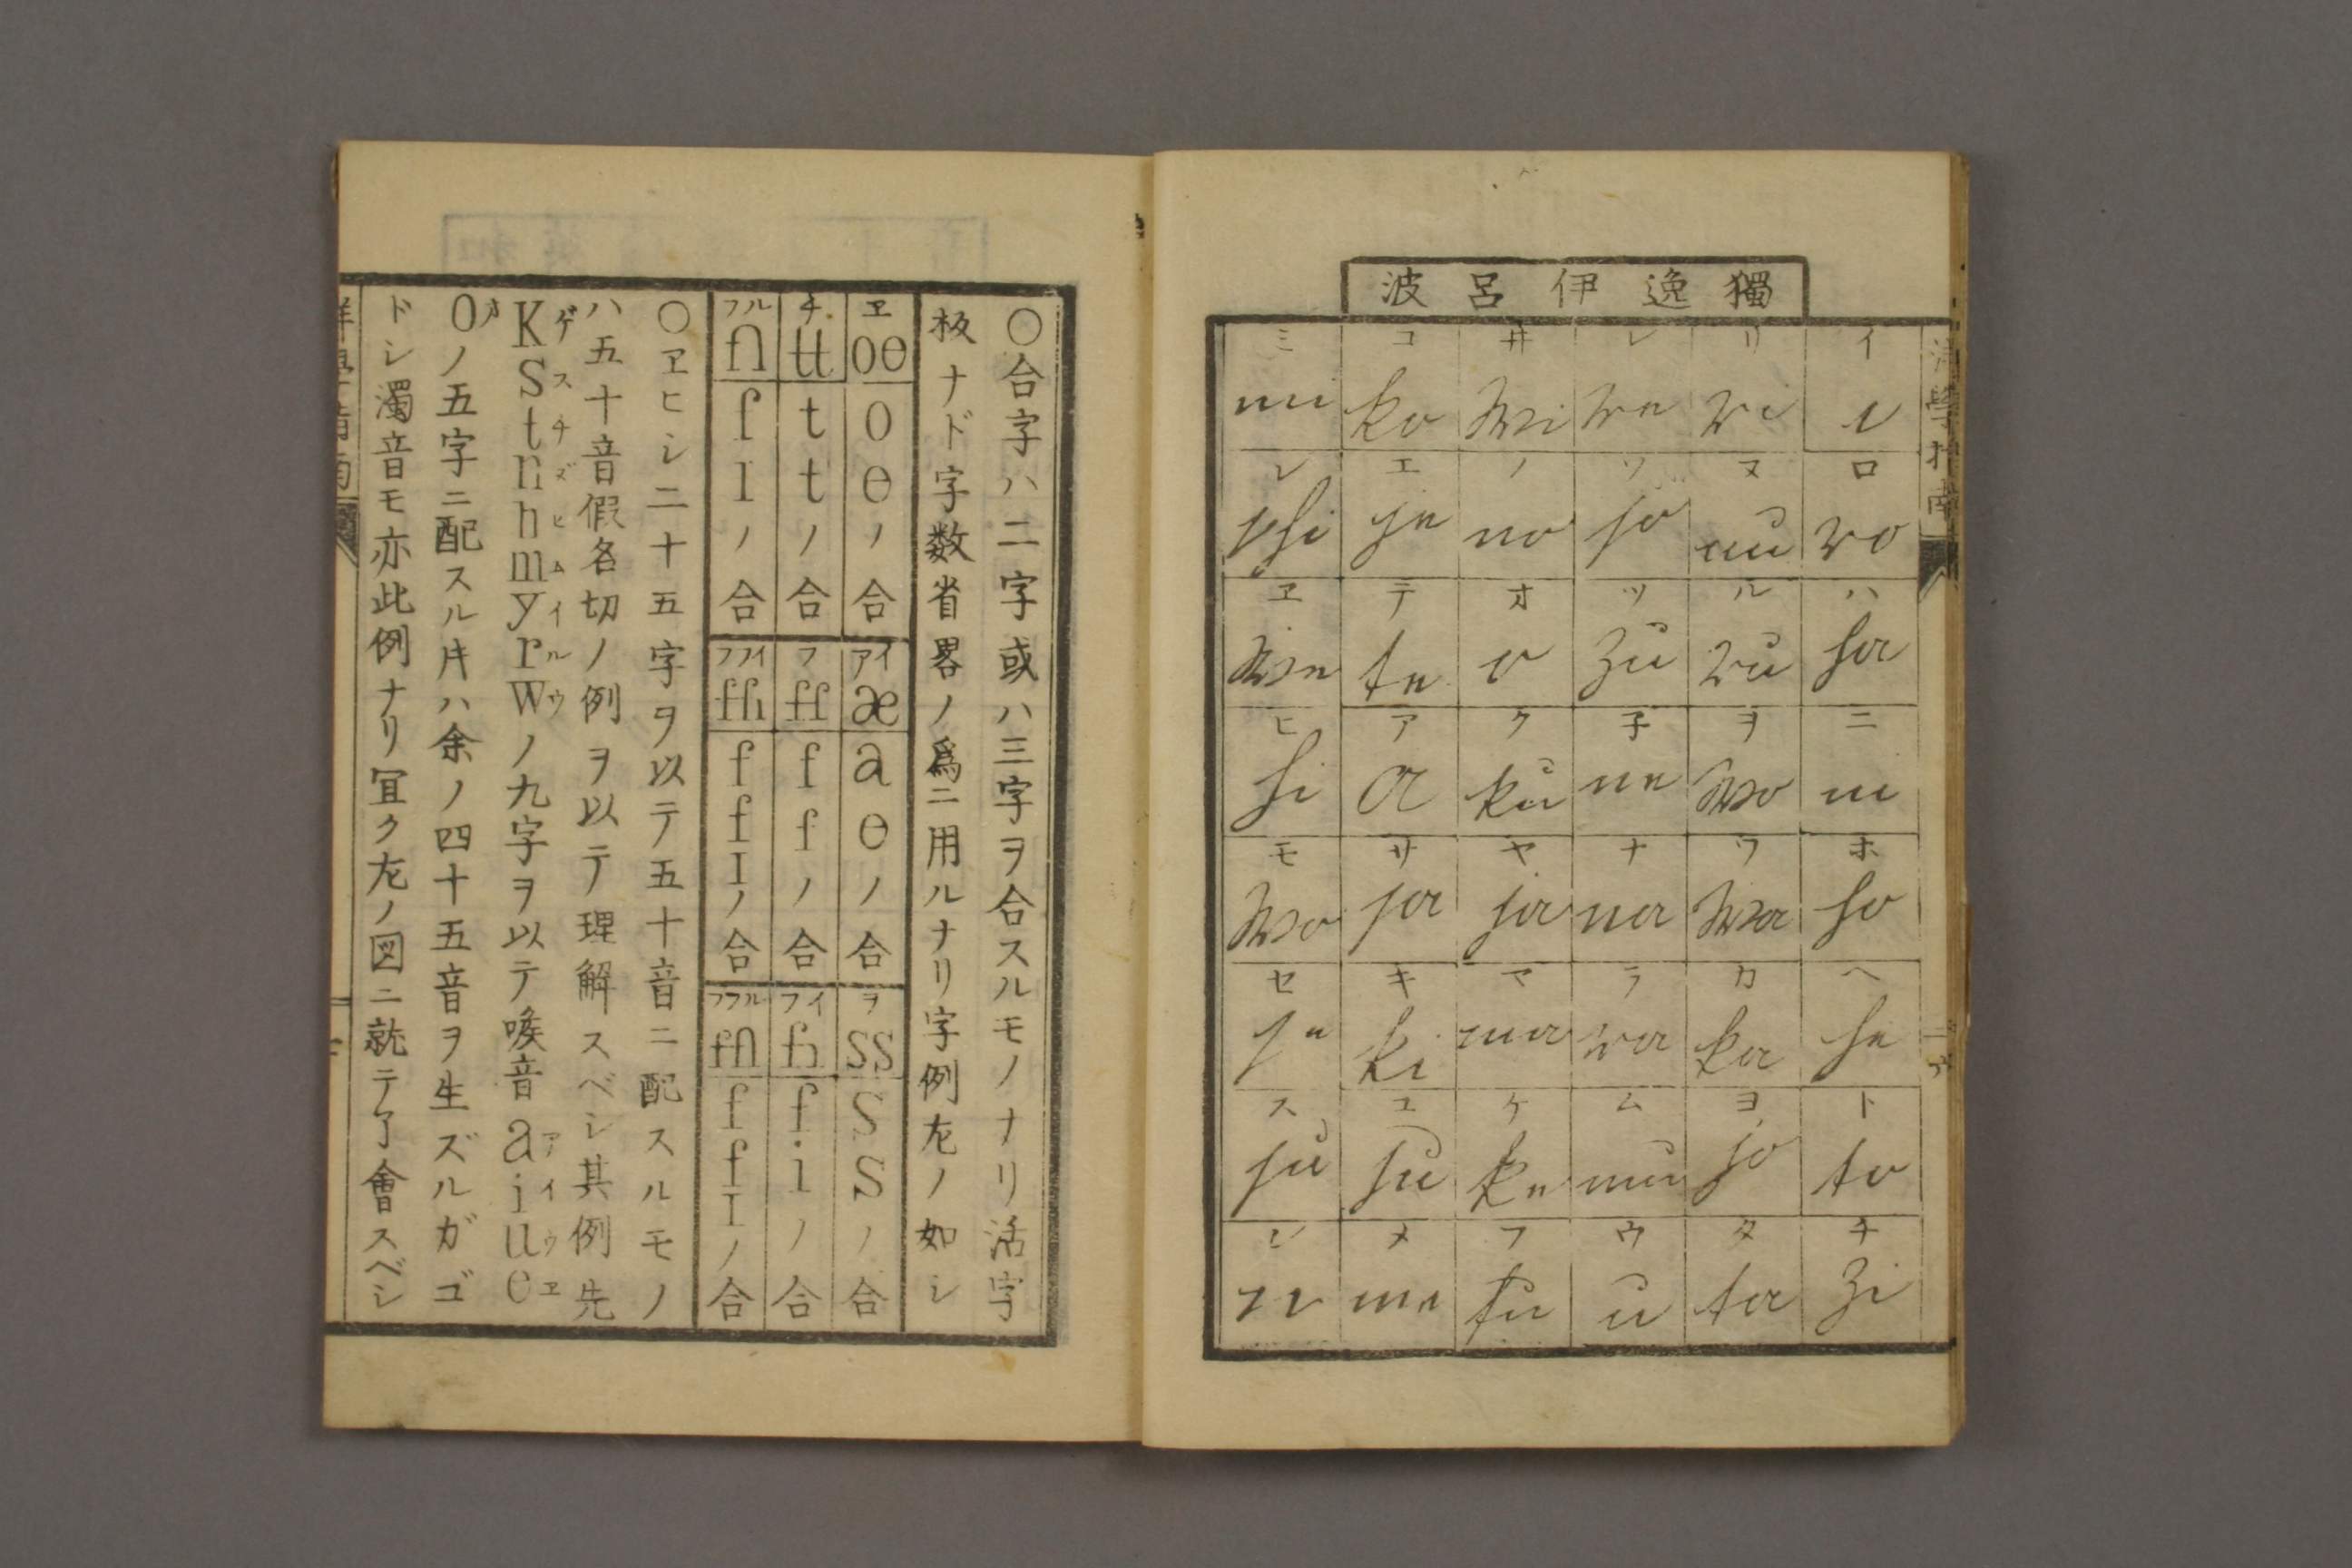 洋學指南
獨逸伊呂波
イ i
ロ ro
ハ ha
ニ ni
ホ ho
ヘ he
ト to
チ zi
リ ri
ヌ nu
ル ru
ヲ wo
ワ wa
カ ka
ヨ jo
タ ta
レ re
ソ so
ツ zu
子 ne
ナ na
ラ ra
ム mu
ウ u
井 wi
ノ no
オ o
ク ku
ヤ ja
マ ma
ケ ke
フ fu
コ ko
エ je
テ te
ア a
サ sa
キ ki
ユ ju
メ me
ミ mi
シ shi
ヱ we
ヒ hi
モ wo
セ se
ス su
ン
〇合字ハ二字或ハ三字ヲ合スルモノナリ活字
板ナド字数省畧ノ爲ニ用ルナリ字例左ノ如シ
ヱ oe oeノ合
アイ æ aeノ合
ヲ ss ssノ合
チ tt ttノ合
フ ff ffノ合
フイ fi fiノ合
フル fl flノ合
フフイ ffi ffIノ合
フフル ffl ffIノ合
〇ヱヒシ二十五字ヲ以テ五十音ニ配スルモノ
ハ五十音假名切ノ例ヲ以テ理解スベシ其例先
KゲSスtチnヌhヒmムyイrルwウノ九字ヲ以テ喉音aアiイuウeヱ
oオノ五字ニ配スル片ハ余ノ四十五音ヲ生ズルガゴ
ドシ濁音モ亦此例ナリ冝ク左ノ図ニ就テ了會スベシ
洋學指南